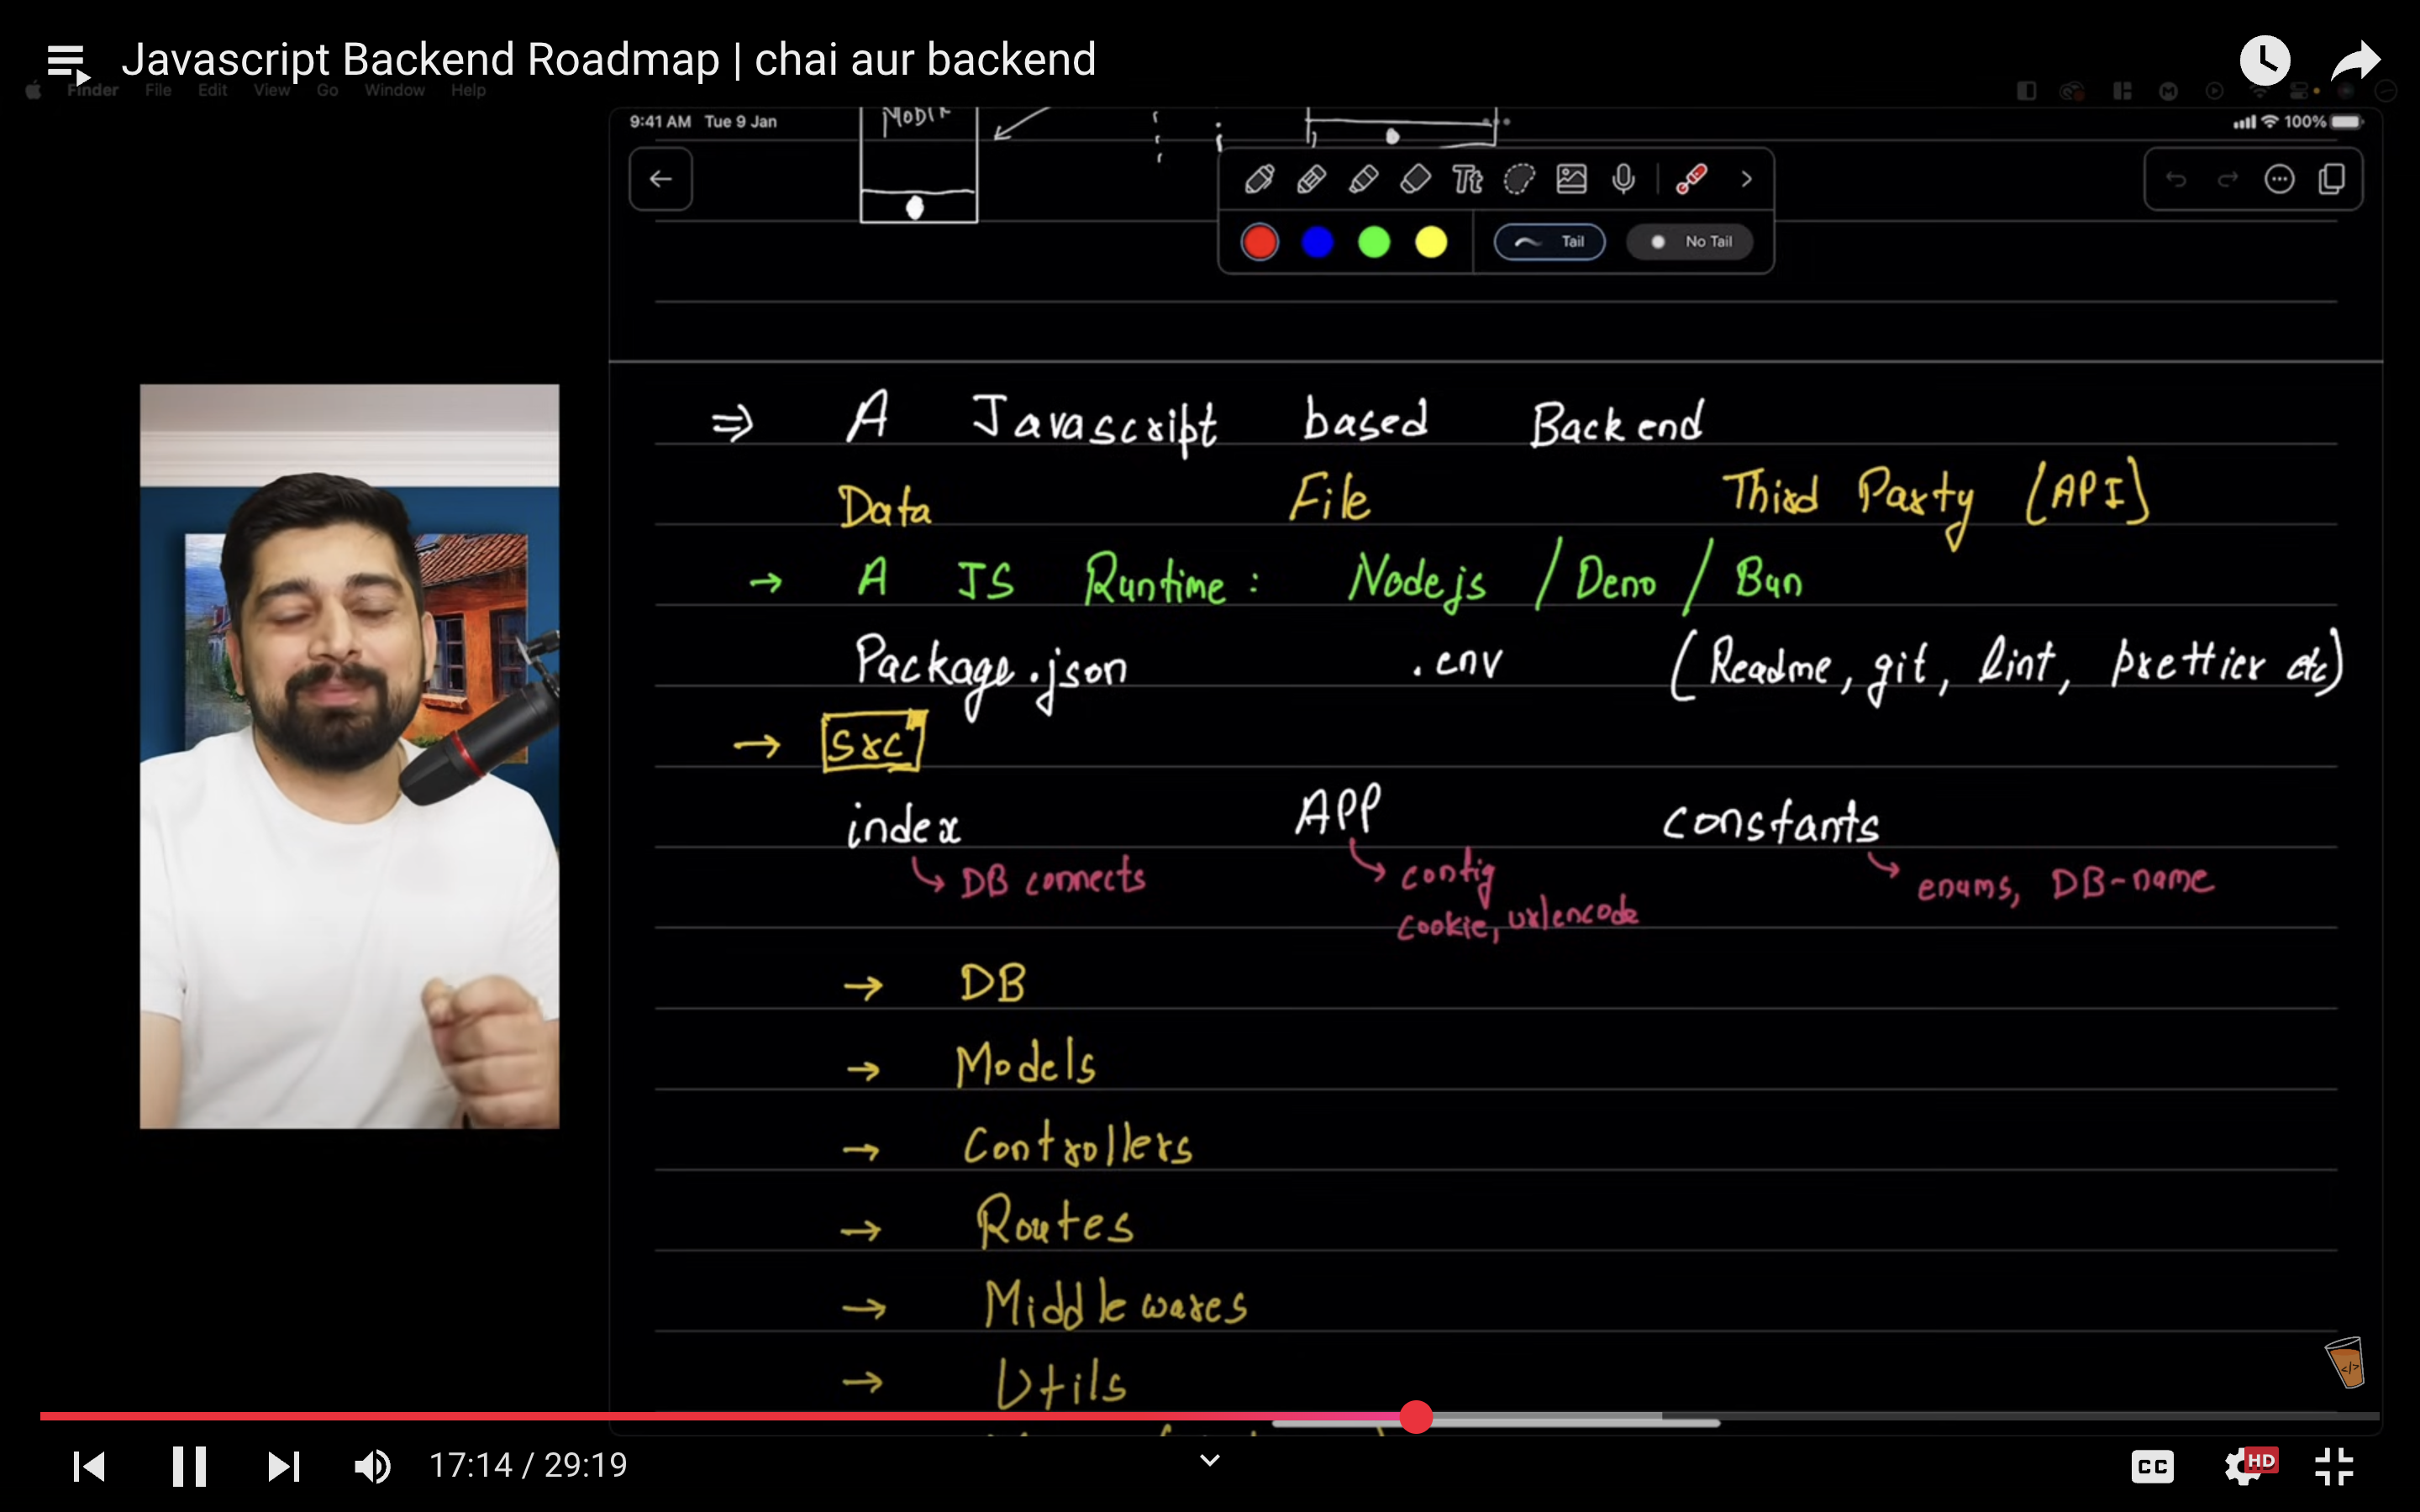 Javascript Backend Roadmap | chai aur backend
Finder File Edit View Go Window Help
9:41 AM Tue 9 Jan
100%
Tt
Tail No Tail
⇒ A Javascript based Backend
Data File Third Party (API)
→ A JS Runtime: Nodejs / Deno / Bun
Package.json .env (Readme, git, lint, prettier etc)
→ src
index APP constants
DB connects config enums, DB-name
cookie, urlencode
→ DB
→ Models
→ Controllers
→ Routes
→ Middlewares
→ Utils
17:14 / 29:19
CC HD